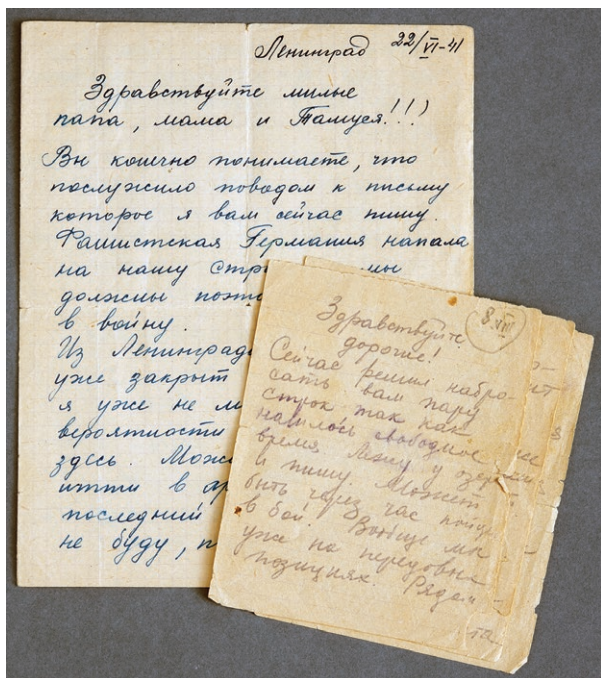 Ленинград 22/VI-41
Здравствуйте милые
папа, мама и Тамуся!!!)
Вы конечно понимаете, что
послужило поводом к письму
которое я вам сейчас пишу.
Фашистская Германия напала
на нашу стр мы
должны поэто
в войну.
Из Ленинград
уже закрыт
я уже не м
вероятности
здесь. Може
итти в ар
последний
не буду, п
8 VIII
Здравствуйте
дорогие!
Сейчас решил набро-
сать вам пару
строк так как
нашлось свободное
время Лежу у озера
и пишу. Может
быть через час пойду
в бой. Вообще мы
уже на передовых
позициях. Рядом